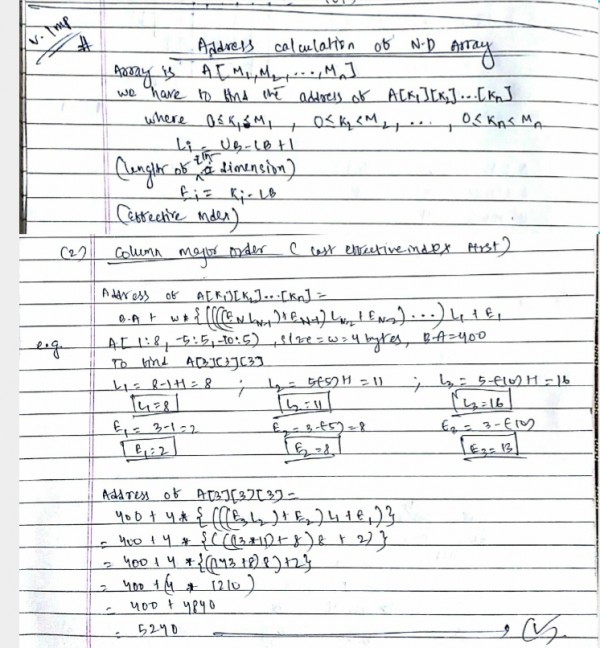 V. Imp
# Address calculation of N-D Array
Array is A[M1,M2,...,Mn]
we have to find the address of A[K1][K2]...[Kn]
where 0≤K1≤M1 , 0≤K2<M2, ..., 0≤Kn<Mn
Li = UB-LB+1
(length of ith dimension)
Ei = Ki-LB
(effective index)
(2) Column major order ( last effective index first)
Address of A[K1][K2]...[Kn] =
B.A + W*{(((EN LN-1)+EN-1) LN-2 + EN-2) ...) L1 + E1
e.g. A[1:8, -5:5, -10:5) , size=w=4 bytes, B.A=400
To find A[3][3][3]
L1 = 8-1+1=8 ; L2 = 5-(-5)+1 = 11 ; L3 = 5-(-10)+1=16
L1=8 L2=11 L3=16
E1 = 3-1=2 E2 = 3-(-5)=8 E3 = 3-(-10)
E1=2 E2=8 E3=13
Address of A[3][3][3]=
400 + 4*{(((E3L2)+E2)L1+E1)}
= 400 + 4*{(((13*11)+8)8+2)}
= 400 + 4*{((143+8)8)+2}
= 400 + (4 * 1210)
= 400 + 4840
= 5240